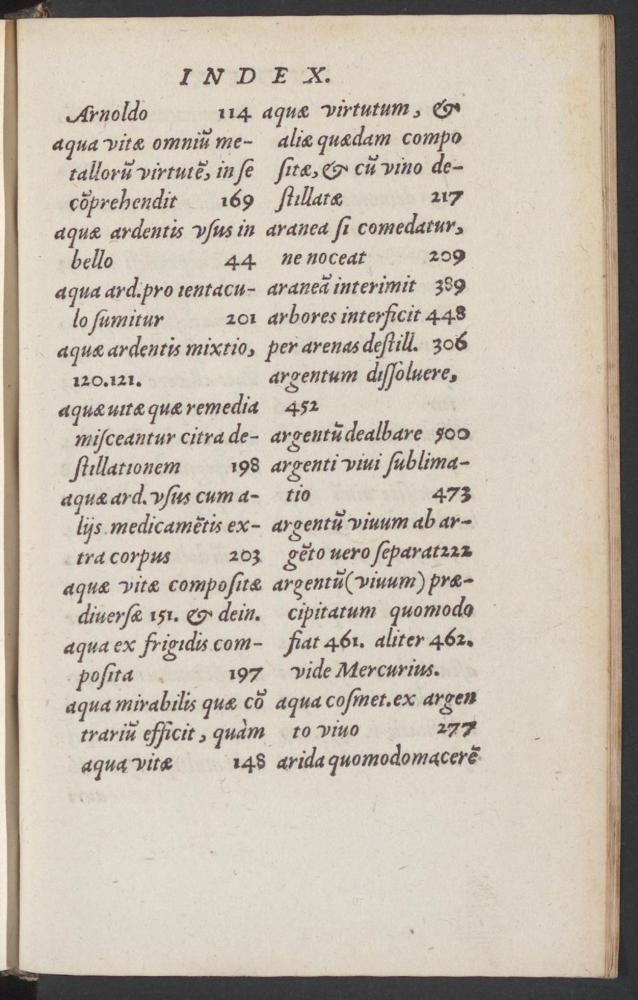 INDEX.
Arnoldo 114
aqua vitæ omniū me-
tallorū virtutē, in se
cōprehendit 169
aquæ ardentis vsus in
bello 44
aqua ard. pro ientacu-
lo sumitur 201
aquæ ardentis mixtio,
120.121.
aquæ uitæ quæ remedia
misceantur citra de-
stillationem 198
aquæ ard. vsus cum a-
lijs medicamētis ex-
tra corpus 203
aquæ vitæ compositæ
diuersæ 151. & dein.
aqua ex frigidis com-
posita 197
aqua mirabilis quæ cō
trariū efficit, quàm
aqua vitæ 148
aquæ virtutum, &
aliæ quædam compo
sitæ, & cū vino de-
stillatæ 217
aranea si comedatur,
ne noceat 209
araneā interimit 389
arbores interficit 448
per arenas destill. 306
argentum dissoluere,
452
argentū dealbare 500
argenti viui sublima-
tio 473
argentū viuum ab ar-
gēto uero separat 222
argentū (viuum) præ-
cipitatum quomodo
fiat 461. aliter 462.
vide Mercurius.
aqua cosmet. ex argen
to viuo 277
arida quomodo macerē